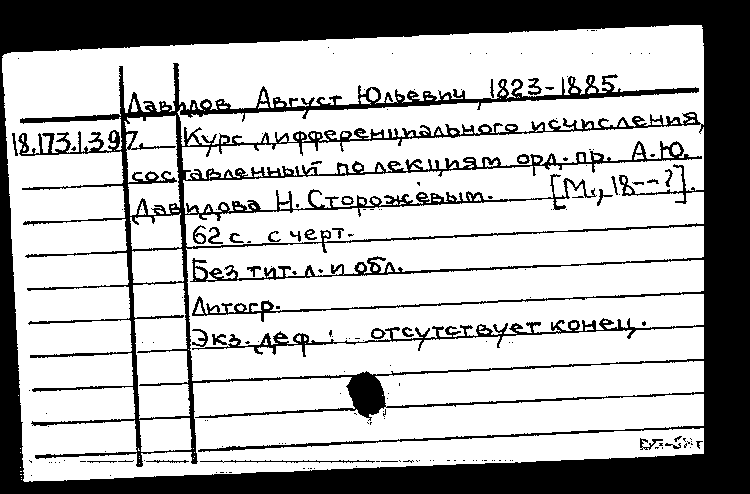 Давидов, Август Юльевич, 1823-1885.
18.173.1.397. Курс дифференциального исчисления,
составленный по лекциям орд. пр. А.Ю.
Давидова Н. Сторожевым. [М., 18--?].
62 с. с черт.
Без тит. л. и обл.
Литогр.
Экз. деф.: отсутствует конец.